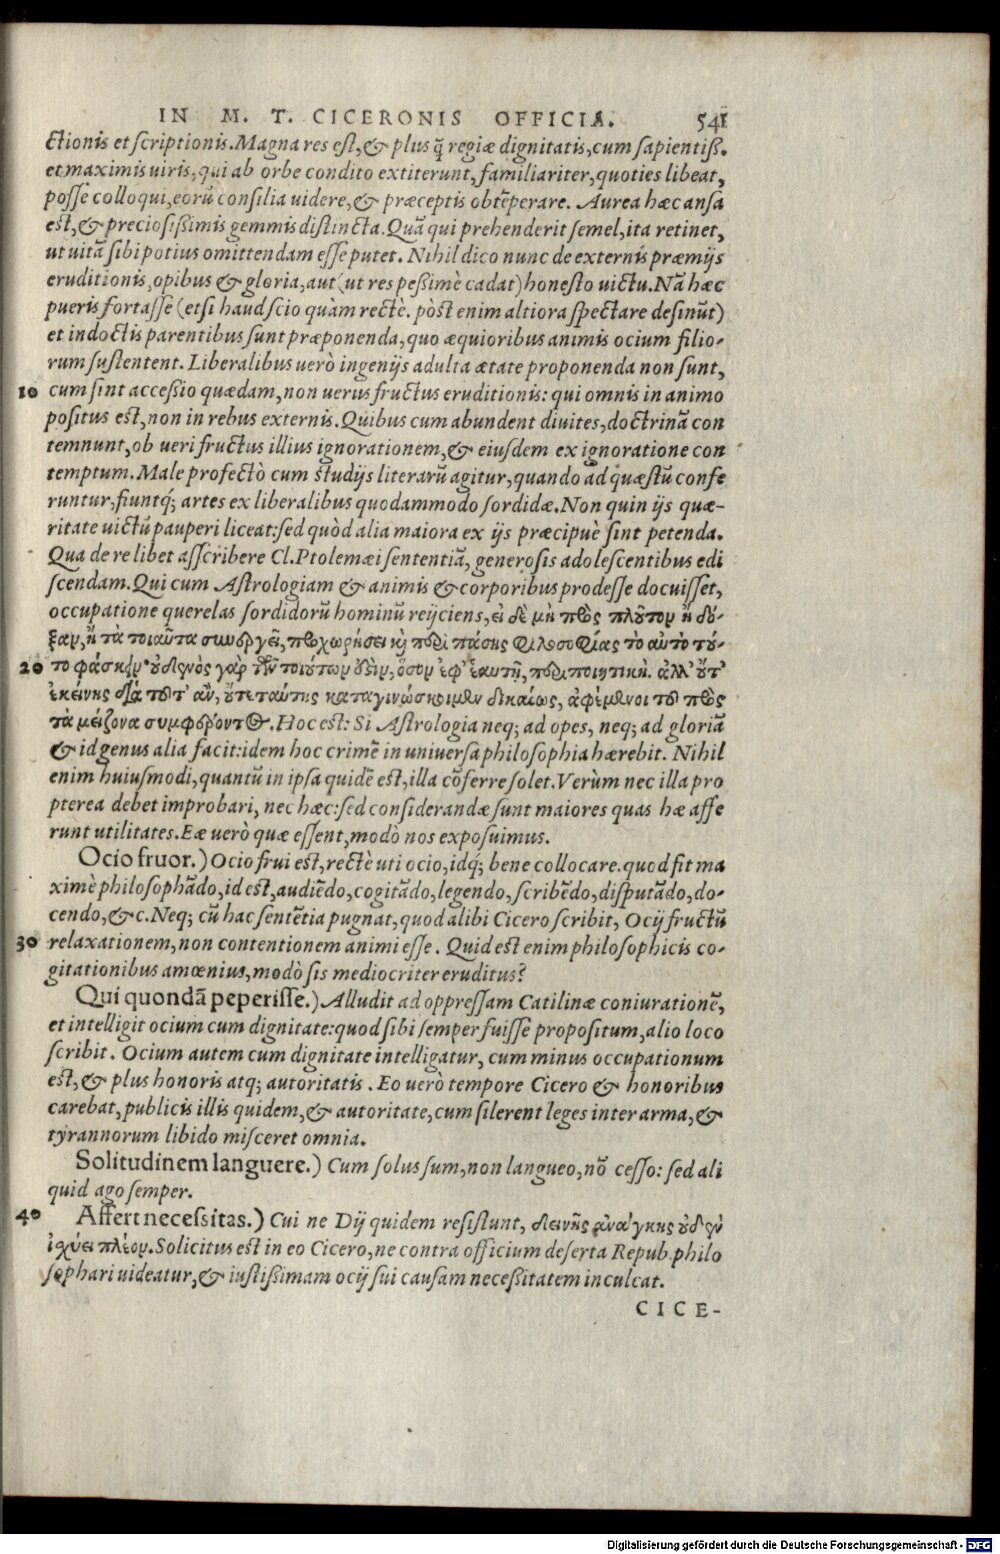 IN M. T. CICERONIS OFFICIA. 541
ctionis et scriptionis. Magna res est, & plus q̃ regiæ dignitatis, cum sapientiß.
et maximis uiris, qui ab orbe condito extiterunt, familiariter, quoties libeat,
posse colloqui, eorũ consilia uidere, & præceptis obtẽperare. Aurea hæc ansa
est, & preciosißimis gemmis distincta. Quã qui prehenderit semel, ita retinet,
ut uitã sibi potius omittendam esse putet. Nihil dico nunc de externis præmijs
eruditionis, opibus & gloria, aut (ut res peßimè cadat) honesto uictu. Nã hæc
pueris fortasse (etsi haud scio quàm rectè. pòst enim altiora spectare desinũt)
et indoctis parentibus sunt præponenda, quo æquioribus animis ocium filio-
rum sustentent. Liberalibus uerò ingenijs adulta ætate proponenda non sunt,
10 cum sint accessio quædam, non uerus fructus eruditionis: qui omnis in animo
positus est, non in rebus externis. Quibus cum abundent diuites, doctrinã con
temnunt, ob ueri fructus illius ignorationem, & eiusdem ex ignoratione con
temptum. Male profectò cum studijs literarũ agitur, quando ad quæstũ confe
runtur, fiuntq́; artes ex liberalibus quodammodo sordidæ. Non quin ijs quæ-
ritate uictũ pauperi liceat: sed quòd alia maiora ex ijs præcipuè sint petenda.
Qua de re libet asscribere Cl. Ptolemæi sententiã, generosis adolescentibus edi
scendam. Qui cum Astrologiam & animis & corporibus prodesse docuisset,
occupatione querelas sordidorũ hominũ reijciens, εἰ δὲ μὴ πρὸς πλοῦτον ἢ δό-
ξαν, ἢ τὰ τοιαῦτα συνεργεῖ, προχωρήσει κὶ περὶ πάσης φιλοσοφίας τὸ αὐτὸ τοῦ-
20 το φάσκειν· οὐδενὸς γὰρ τῶν τοιούτων ὅϊν, ὅσον ἐφ' ἑαυτῇ, περιποιητική. ἀλλ' οὔτ'
ἐκείνης διὰ τοῦτ' ἂν, οὔτε ταύτης καταγινώσκοιμεν δικαίως, ἀφέμενοι τοῦ πρὸς
τὰ μείζονα συμφέροντος. Hoc est: Si Astrologia neq; ad opes, neq; ad gloriã
& id genus alia facit: idem hoc crimẽ in uniuersa philosophia hærebit. Nihil
enim huiusmodi, quantũ in ipsa quidẽ est, illa cõferre solet. Verùm nec illa pro
pterea debet improbari, nec hæc: sed considerandæ sunt maiores quas hæ affe
runt utilitates. Eæ uerò quæ essent, modò nos exposuimus.
Ocio fruor.) Ocio frui est, rectè uti ocio, idq́; bene collocare. quod fit ma
ximè philosophãdo, id est, audiẽdo, cogitãdo, legendo, scribẽdo, disputãdo, do-
cendo, &c. Neq; cũ hac sentẽtia pugnat, quod alibi Cicero scribit, Ocij fructũ
30 relaxationem, non contentionem animi esse. Quid est enim philosophicis co-
gitationibus amœnius, modò sis mediocriter eruditus?
Qui quondã peperisse.) Alludit ad oppressam Catilinæ coniurationẽ,
et intelligit ocium cum dignitate: quod sibi semper fuisse propositum, alio loco
scribit. Ocium autem cum dignitate intelligatur, cum minus occupationum
est, & plus honoris atq; autoritatis. Eo uerò tempore Cicero & honoribus
carebat, publicis illis quidem, & autoritate, cum silerent leges inter arma, &
tyrannorum libido misceret omnia.
Solitudinem languere.) Cum solus sum, non langueo, nõ cesso: sed ali
quid ago semper.
40 Affert necessitas.) Cui ne Dij quidem resistunt, δεινῆς ἀνάγκης οὐδὲν
ἰχύει πλέον. Solicitus est in eo Cicero, ne contra officium deserta Repub. philo
sophari uideatur, & iustißimam ocij sui causam necessitatem inculcat.
CICE-
Digitalisierung gefördert durch die Deutsche Forschungsgemeinschaft - DFG